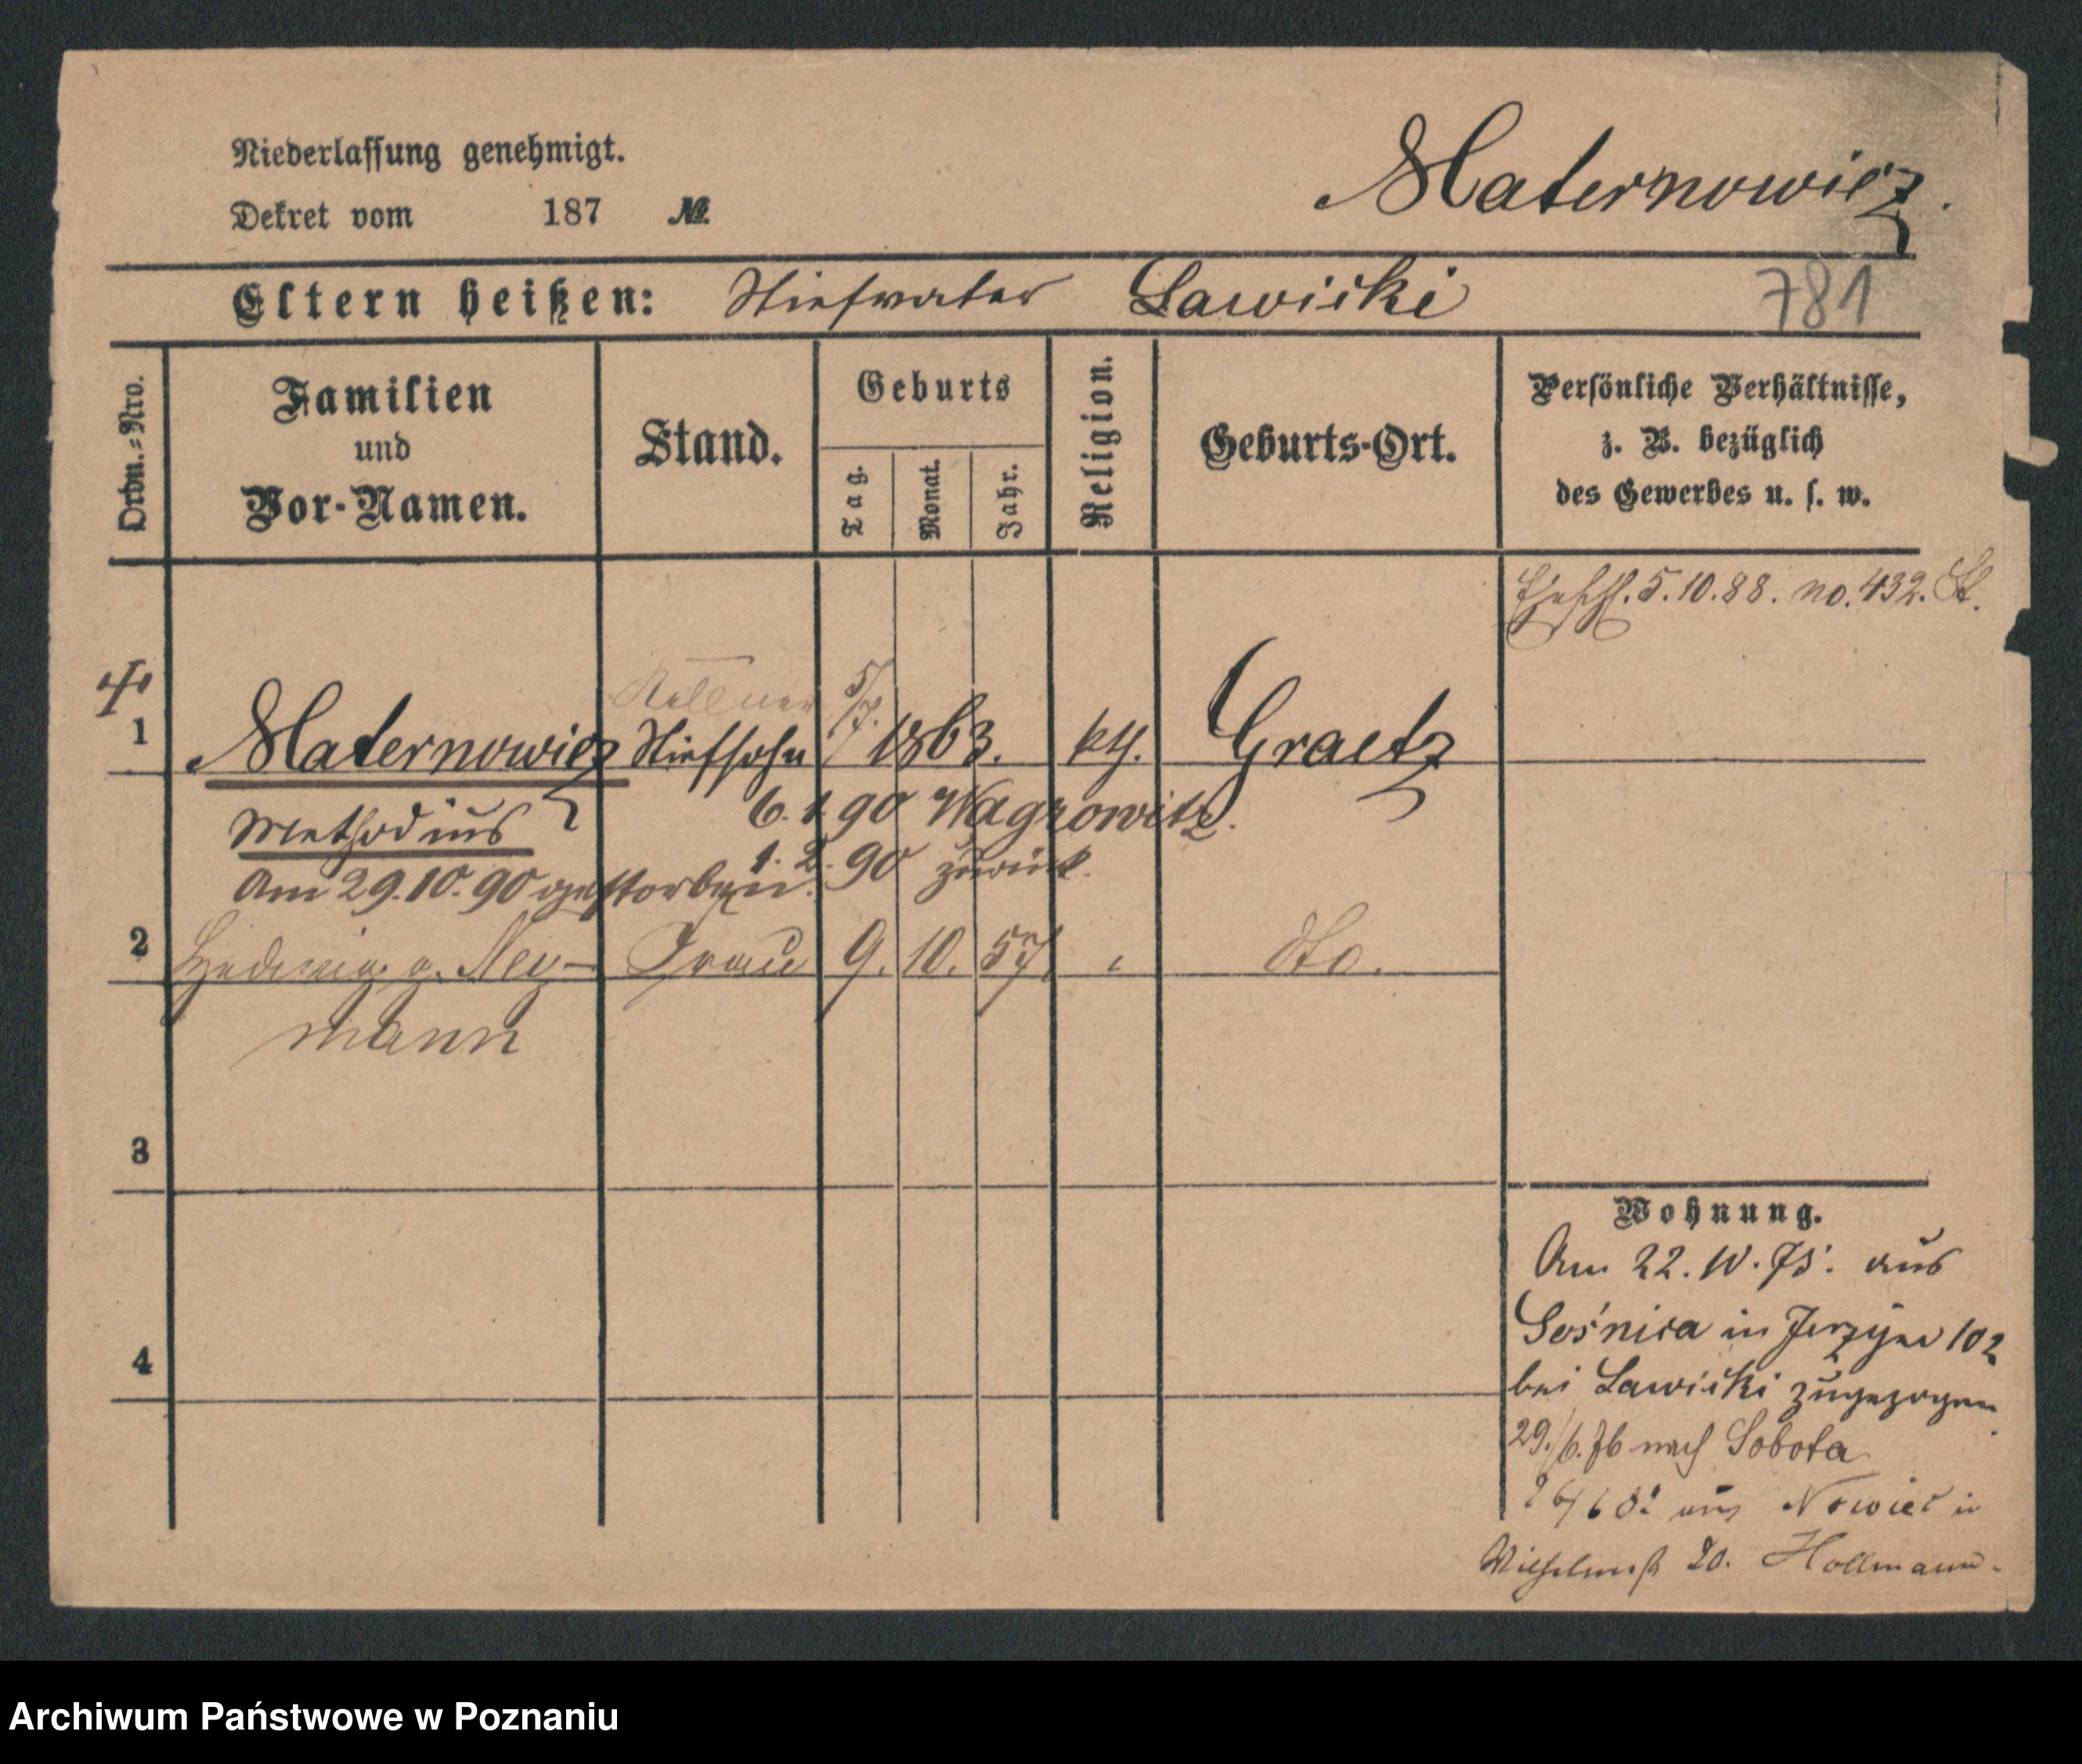 Niederlassung genehmigt.
Maternowicz.
Dekret vom 187 №
Eltern heißen: Stiefvater Lawicki 781
Ordn.=Nro.
Familien
und
Vor-Namen.
Stand.
Geburts
Tag.
Monat.
Jahr.
Religion.
Geburts-Ort.
Persönliche Verhältnisse,
z. B. bezüglich
des Gewerbes u. s. w.
5.10.88. no. 432. St.
Kellner 5/7.
1 Maternowicz Stiefsohn 1863. kth. Graetz
Methodius 6. 1. 90 Wagrowitz.
1. 2. 90 zurück.
Am 29.10.90 gestorben.
2 Hedwig g. Ney- Frau 9. 10. 57 dto.
mann
3
4
Wohnung.
Am 22. 10. 75. aus
Sośnica in Jerzyce 102
bei Lawicki zugezogen
29./6.76 nach Sobota
aus Nowiec in
Wilhelmst 20. Hollmann.
Archiwum Państwowe w Poznaniu